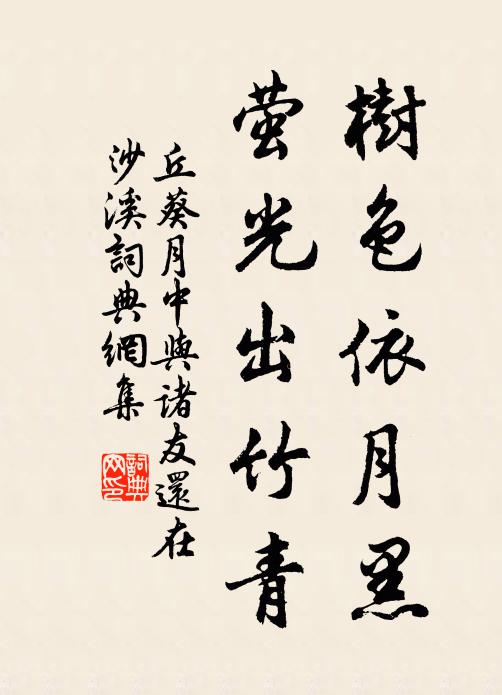 樹色依月黑
萤光出竹青
丘葵月中與諸友還在
沙溪詞典網集
詞典
网印